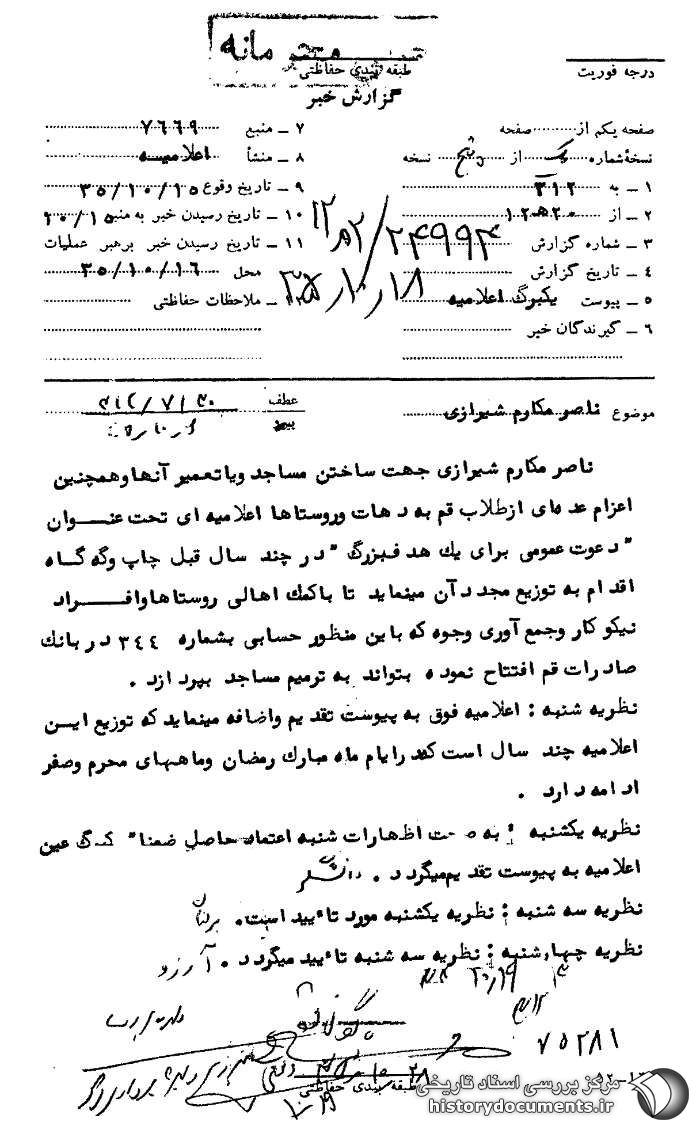 طبقه بندی حفاظتی
گزارش خبر
درجه فوریت
صفحه یکم از صفحه
نسخهٔ شماره یک از پنج نسخه
۱ ـ به ۳۱۲
۲ ـ از ۲۰ هـ ۱۲
۳ ـ شماره گزارش ۲۴۹۹۴/
۴ ـ تاریخ گزارش
۵ ـ پیوست یکبرگ اعلامیه
۶ ـ گیرندگان خبر
۷ ـ منبع ۷۶۶۹
۸ ـ منشأ اعلامیه
۹ ـ تاریخ وقوع ۳۵/۱۰/۱۵
۱۰ ـ تاریخ رسیدن خبر به منبع
۱۱ ـ تاریخ رسیدن خبر برهبر عملیات
محل ۳۵/۱۰/۱۶
ملاحظات حفاظتی
موضوع ناصر مکارم شیرازی
عطف
ناصر مکارم شیرازی جهت ساختن مساجد ویاتعمیر آنها وهمچنین
اعزام عده‌ای ازطلاب قم به دهات وروستاها اعلامیه ای تحت عنوان
"دعوت عمومی برای یك هدفبزرگ" در چند سال قبل چاپ وگه گاه
اقدام به توزیع مجددآن مینماید تا باکمك اهالی روستاهاوافراد
نیکو کار وجمع آوری وجوه که باین منظور حسابی بشماره ۳۴۴ در بانك
صادرات قم افتتاح نموده بتواند به ترمیم مساجد بپردازد .
نظریه شنبه : اعلامیه فوق به پیوست تقدیم واضافه مینماید که توزیع این
اعلامیه چند سال است که درایام ماه مبارك رمضان وماههای محرم وصفر
ادامه دارد .
نظریه یکشنبه : به صحت اظهارات شنبه اعتماد حاصل ضمنا" عین
اعلامیه به پیوست تقدیم میگردد . دانشگر
نظریه سه شنبه : نظریه یکشنبه مورد تائید است.
نظریه چهارشنبه : نظریه سه شنبه تائید میگردد . آرزو
۷۵۲۸۱
طبقه بندی حفاظتی
مرکز بررسی اسناد تاریخی
historydocuments.ir